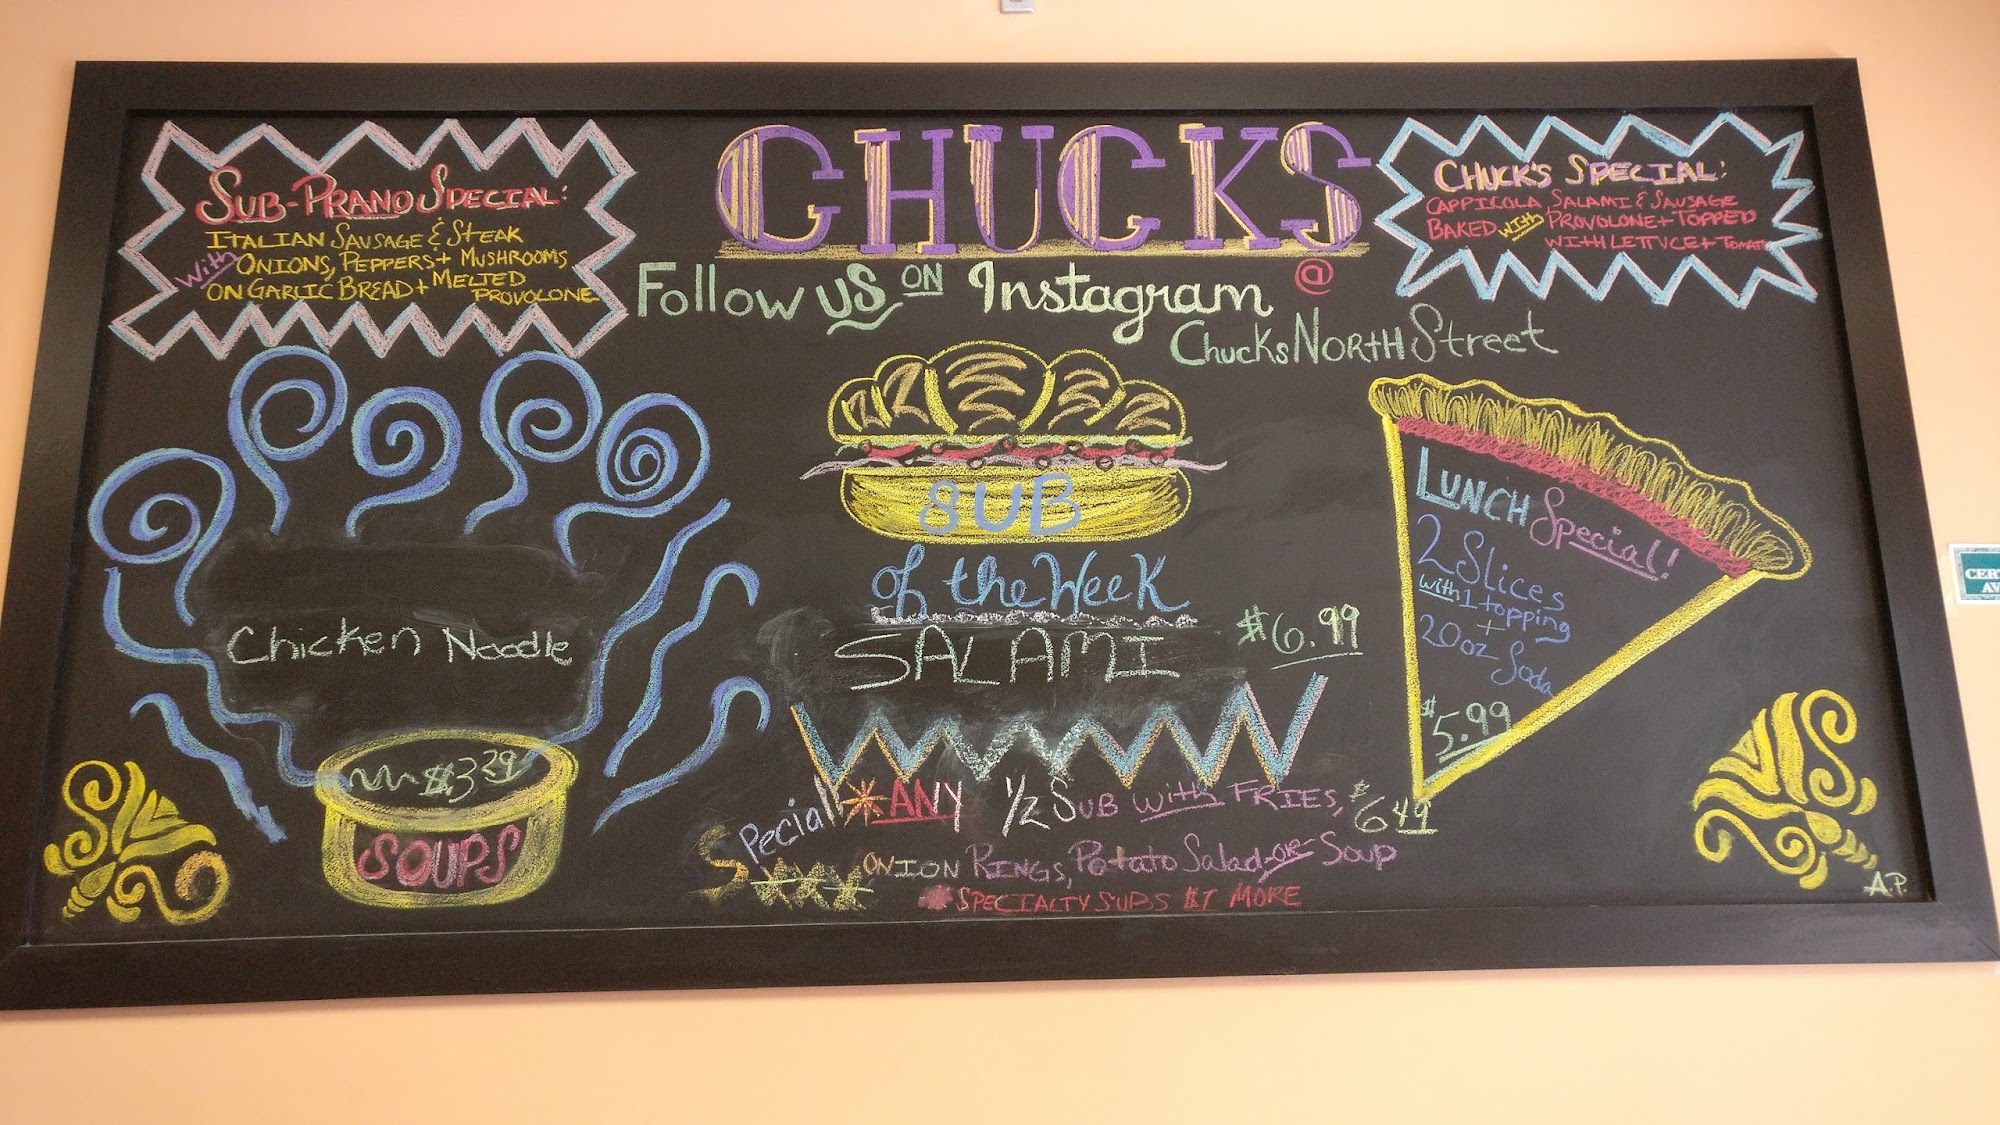 CHUCKS
Follow US ON Instagram @
ChucksNORTHStreet
SUB-PRANO SPECIAL:
ITALIAN SAUSAGE & STEAK
With ONIONS, PEPPERS + MUSHROOMS
ON GARLIC BREAD + MELTED
PROVOLONE
CHUCK'S SPECIAL:
CAPPICOLA SALAMI & SAUSAGE
BAKED WITH PROVOLONE + TOPPED
WITH LETTUCE + TOMATO
Chicken Noodle
$3.29
SOUPS
SUB
of the Week
SALAMI $6.99
LUNCH Special!
2 Slices
with 1 topping
+
20oz Soda
$5.99
Special *ANY 1/2 SUB with FRIES, $6.49
ONION RINGS, Potato Salad -OR- Soup
* SPECIALTY SUBS $1 MORE
A.P.
CER
AV